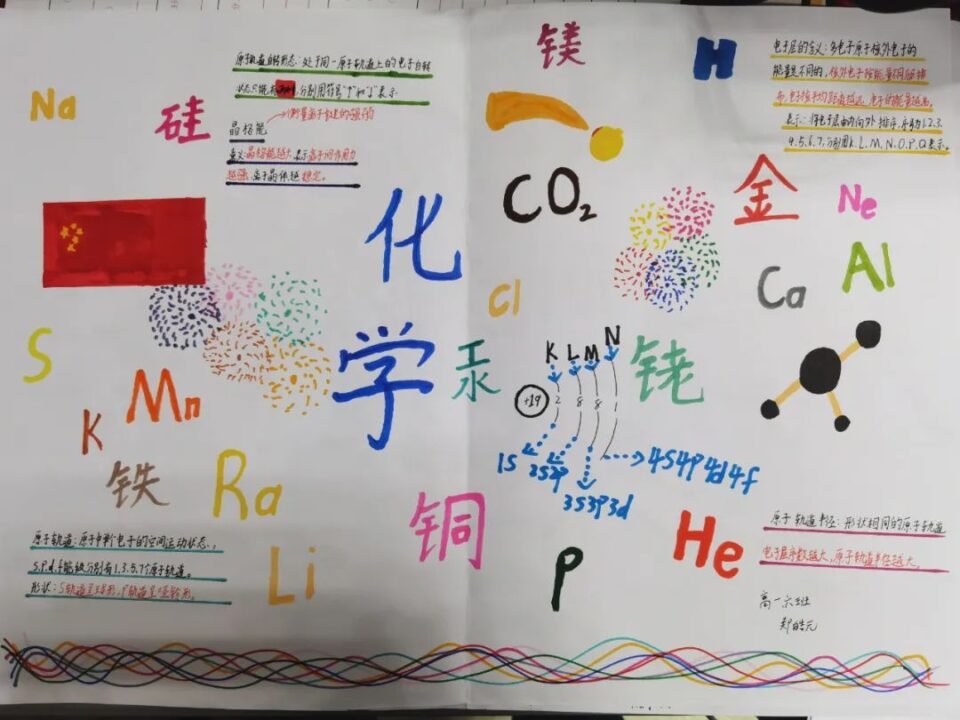 Na
硅
原子轨道自转形态：处于同一原子轨道上的电子自转
状态只能有两种，分别用符号"↑"和"↓"表示
晶格能
→衡量离子键的强弱
意义：晶格能越大，表示离子间作用力
越强，离子晶体越稳定。
镁
H
电子层的含义：多电子原子核外电子的
能量是不同的，核外电子按能量不同能排
布，电子离核平均距离越远，电子的能量越高。
表示：将电子层由内向外排序，序号为1.2.3.
4.5.6.7，分别用K.L.M.N.O.P.Q表示。
CO₂
金
Ne
化
学
Cl
Ca
Al
S
Mn
K
汞
K L M N
+19 2 8 8 1
1S 3S2P 3S3P3d 4S4P4d4f
铑
铁
Ra
铜
Li
P
He
原子轨道：原子中单个电子的空间运动状态.，
S.P.d.f能级分别有1.3.5.7个原子轨道。
形状：S轨道呈球形，P轨道呈哑铃形。
原子轨道半径：形状相同的原子轨道
电子层序数越大，原子轨道半径越大。
高一六班
郑皓元